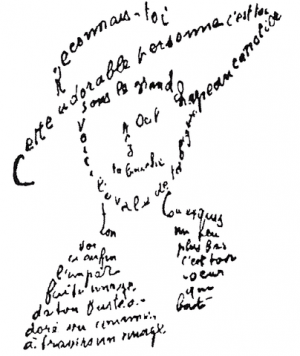 Reconnais-toi
Cette adorable personne c'est toi
Sous le grand chapeau canotier
Oeil
Nez
ta bouche
Voici l'ovale de ta figure
Ton Cou exquis
Voi
ci enfin
l'impar
faite image
de ton buste a
doré vu comme
à travers un nuage
un peu
plus bas
c'est ton
coeur
qui
bat